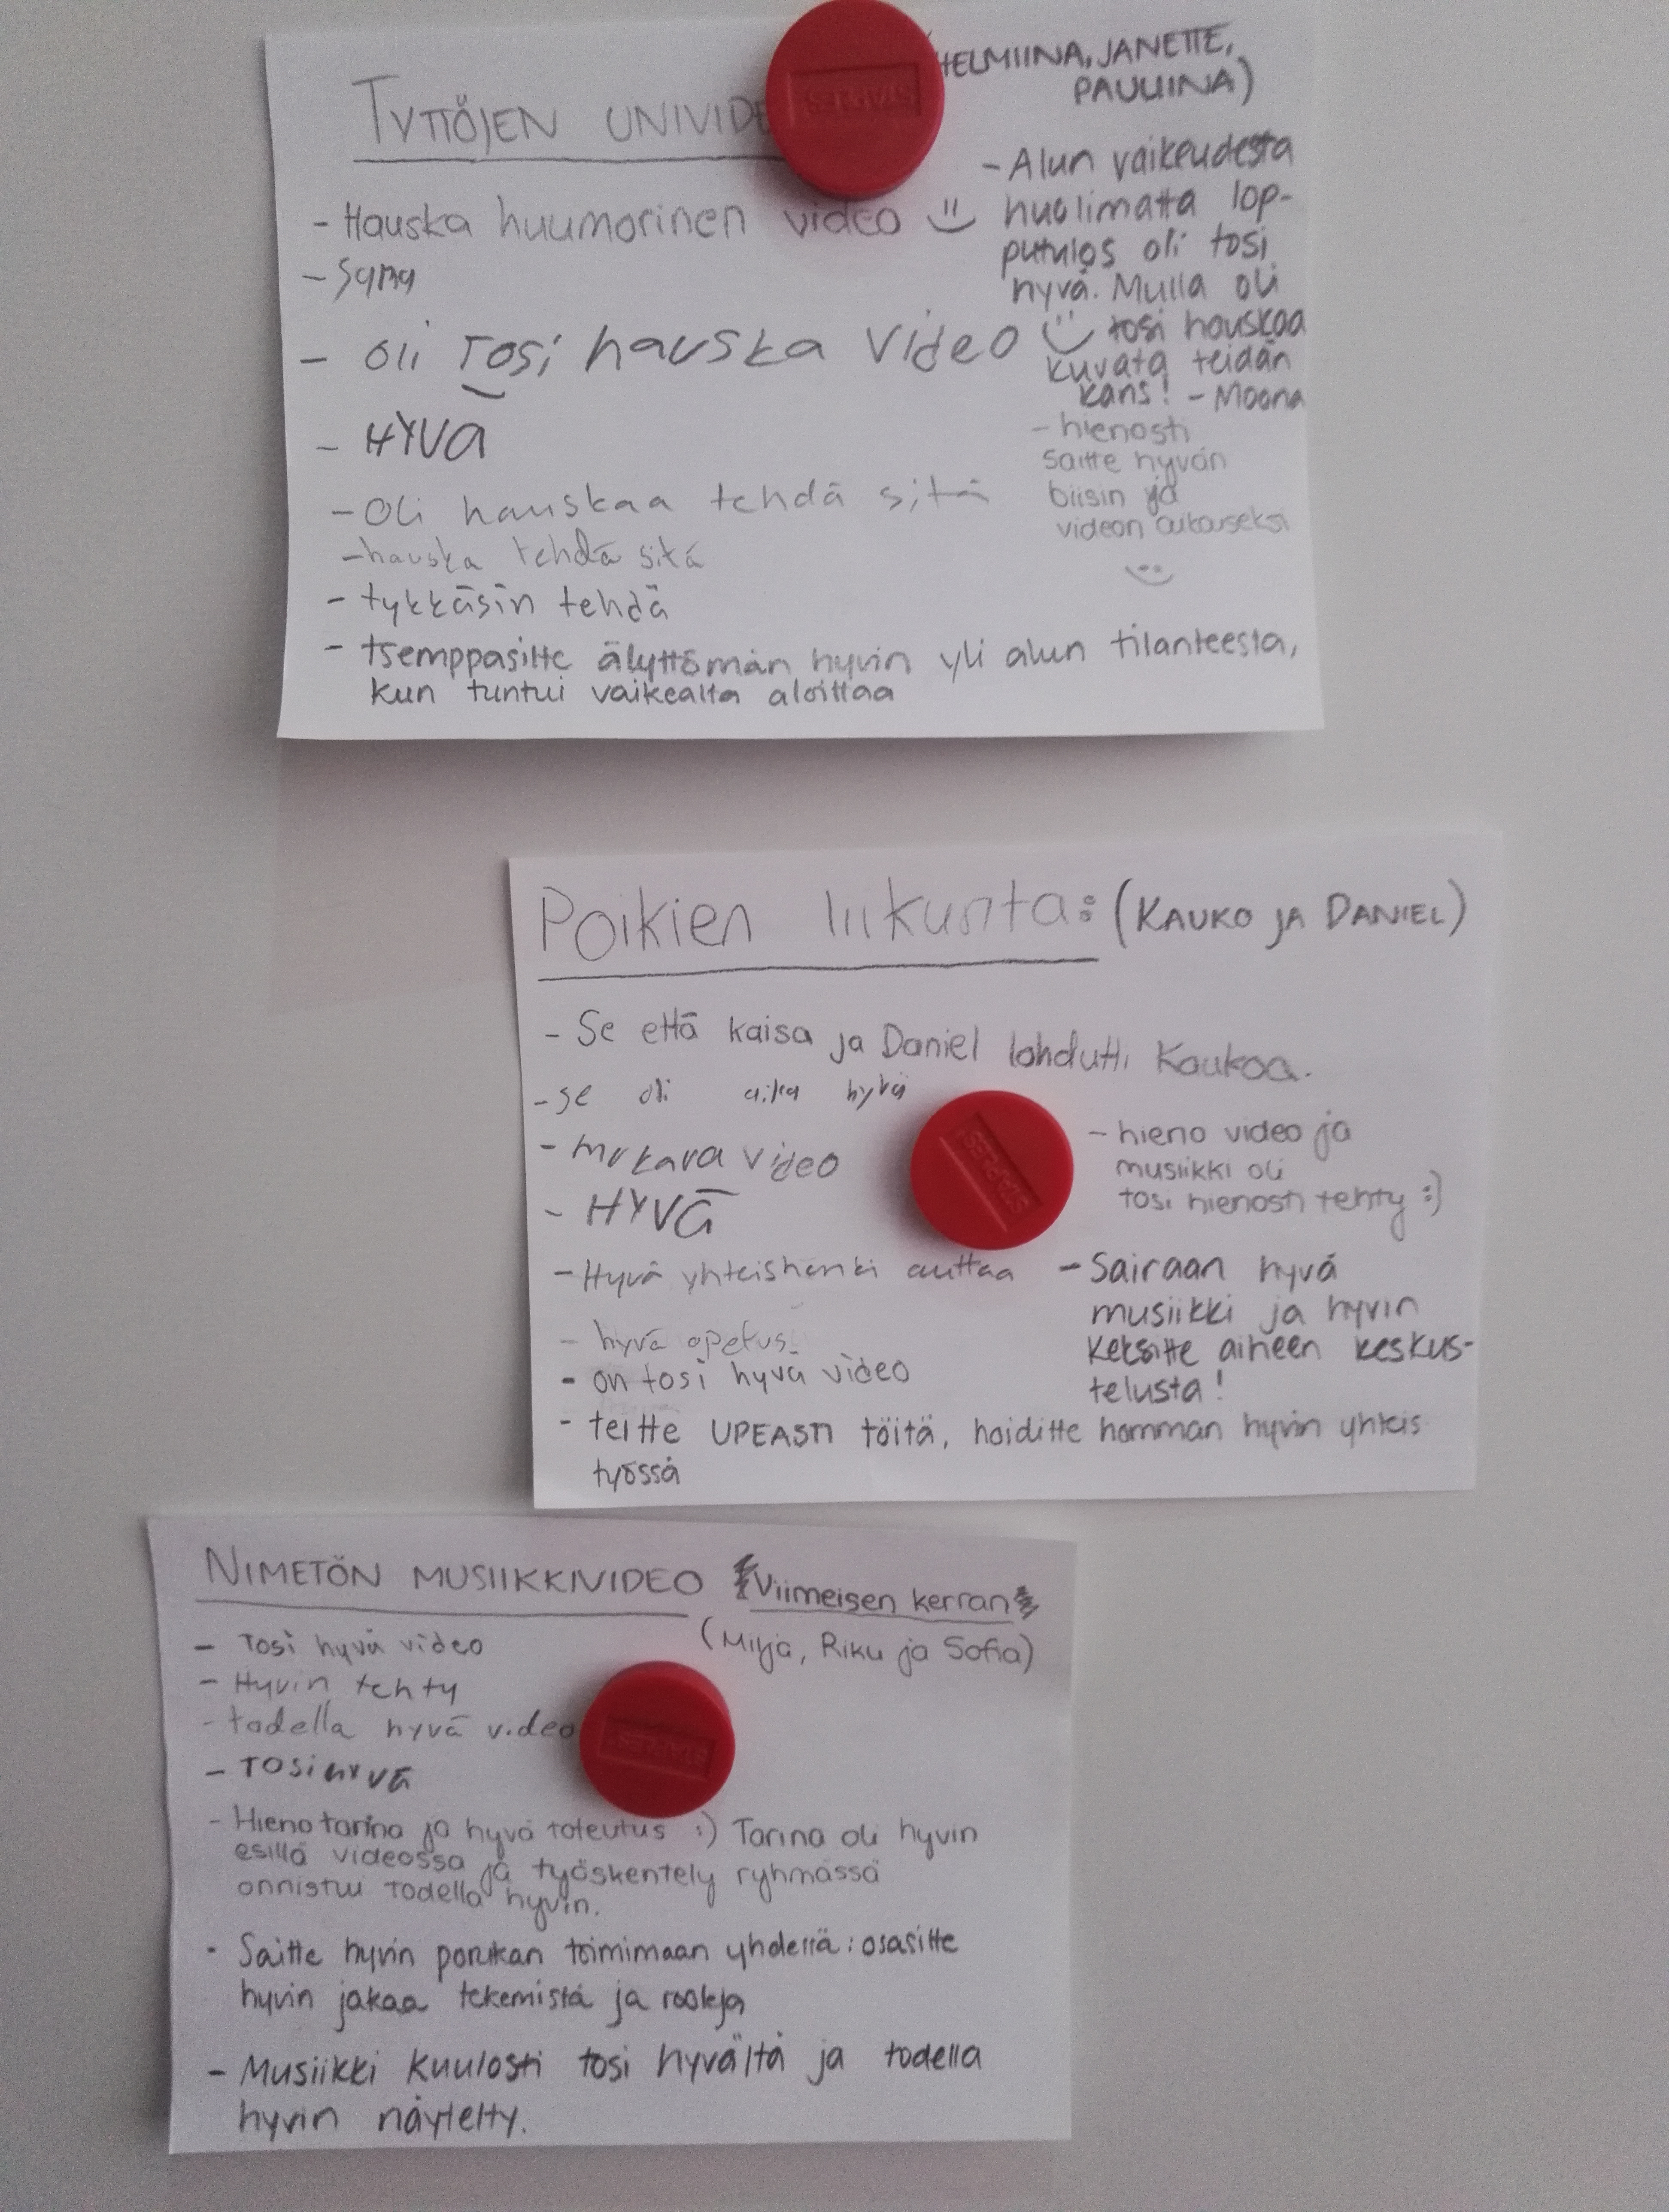 TYTTÖJEN UNIVIDE
(HELMIINA, JANETTE,
PAULIINA)
- Hauska huumorinen video
- Sama
- oli Tosi hauska Video
- HYVÄ
- Oli hauskaa tehdä sitä
- hauska tehdä sitä
- tykkäsin tehdä
- tsemppasitte älyttömän hyvin yli alun tilanteesta,
kun tuntui vaikealta aloittaa
- Alun vaikeudesta
huolimatta lop-
putulos oli tosi
hyvä. Mulla oli
tosi hauskaa
kuvata teidän
kans! - Moona
- hienosti
saitte hyvän
biisin ja
videon aikaseksi
Poikien liikunta: (KAUKO JA DANIEL)
- Se että kaisa ja Daniel lohdutti Kaukoa.
- se oli aika hyvä
- mukava video
- HYVÄ
- Hyvä yhteishenki auttaa
- hyvä opetus.
- on tosi hyvä video
- teitte UPEASTI töitä, hoiditte homman hyvin yhteis
työssä
- hieno video ja
musiikki oli
tosi hienosti tehty :)
- Sairaan hyvä
musiikki ja hyvin
keksitte aiheen keskus-
telusta!
NIMETÖN MUSIIKKIVIDEO Viimeisen kerran
(Milja, Riku ja Sofia)
- Tosi hyvä video
- Hyvin tehty
- todella hyvä video
- TOSI HYVÄ
- Hieno tarina ja hyvä toteutus :) Tarina oli hyvin
esillä videossa ja työskentely ryhmässä
onnistui todella hyvin.
- Saitte hyvin porukan toimimaan yhdessä: osasitte
hyvin jakaa tekemistä ja rooleja
- Musiikki kuulosti tosi hyvältä ja todella
hyvin näytelty.
STAPLES
STAPLES
STAPLES